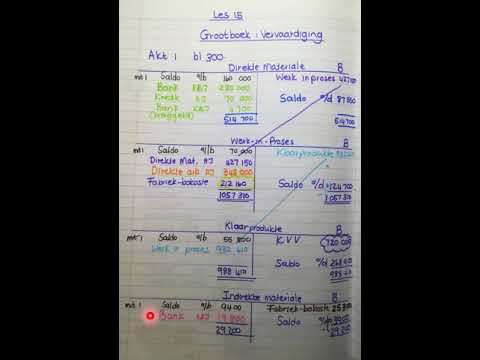 Les 15
Grootboek : Vervaardiging
Akt 1 bl 300
Direkte Materiale B
mt 1 Saldo a/b 160 000 Werk in proses
Bank KBJ 280 000 Saldo o/d 87 550
Kredit KJ 70 000
Bank KBJ 4 700
514 700 514 700
Werk-in-Proses B
mt 1 Saldo a/b 70 000 Klaarprodukte
Direkte Mat. AJ 427 150
Direkte arb AJ 348 000
Fabriek-bokoste 212 160 Saldo o/d 124 700
1 057 310 1 057 310
Klaarprodukte B
mt 1 Saldo a/b 55 800 KVV 720 000
Werk in proses 932 610 Saldo o/d 268 410
988 410 988 410
Indirekte materiale B
mt 1 Saldo a/b 9400 Fabriek-bokoste
Bank KBJ 19 800 Saldo o/d
29 200 29 200